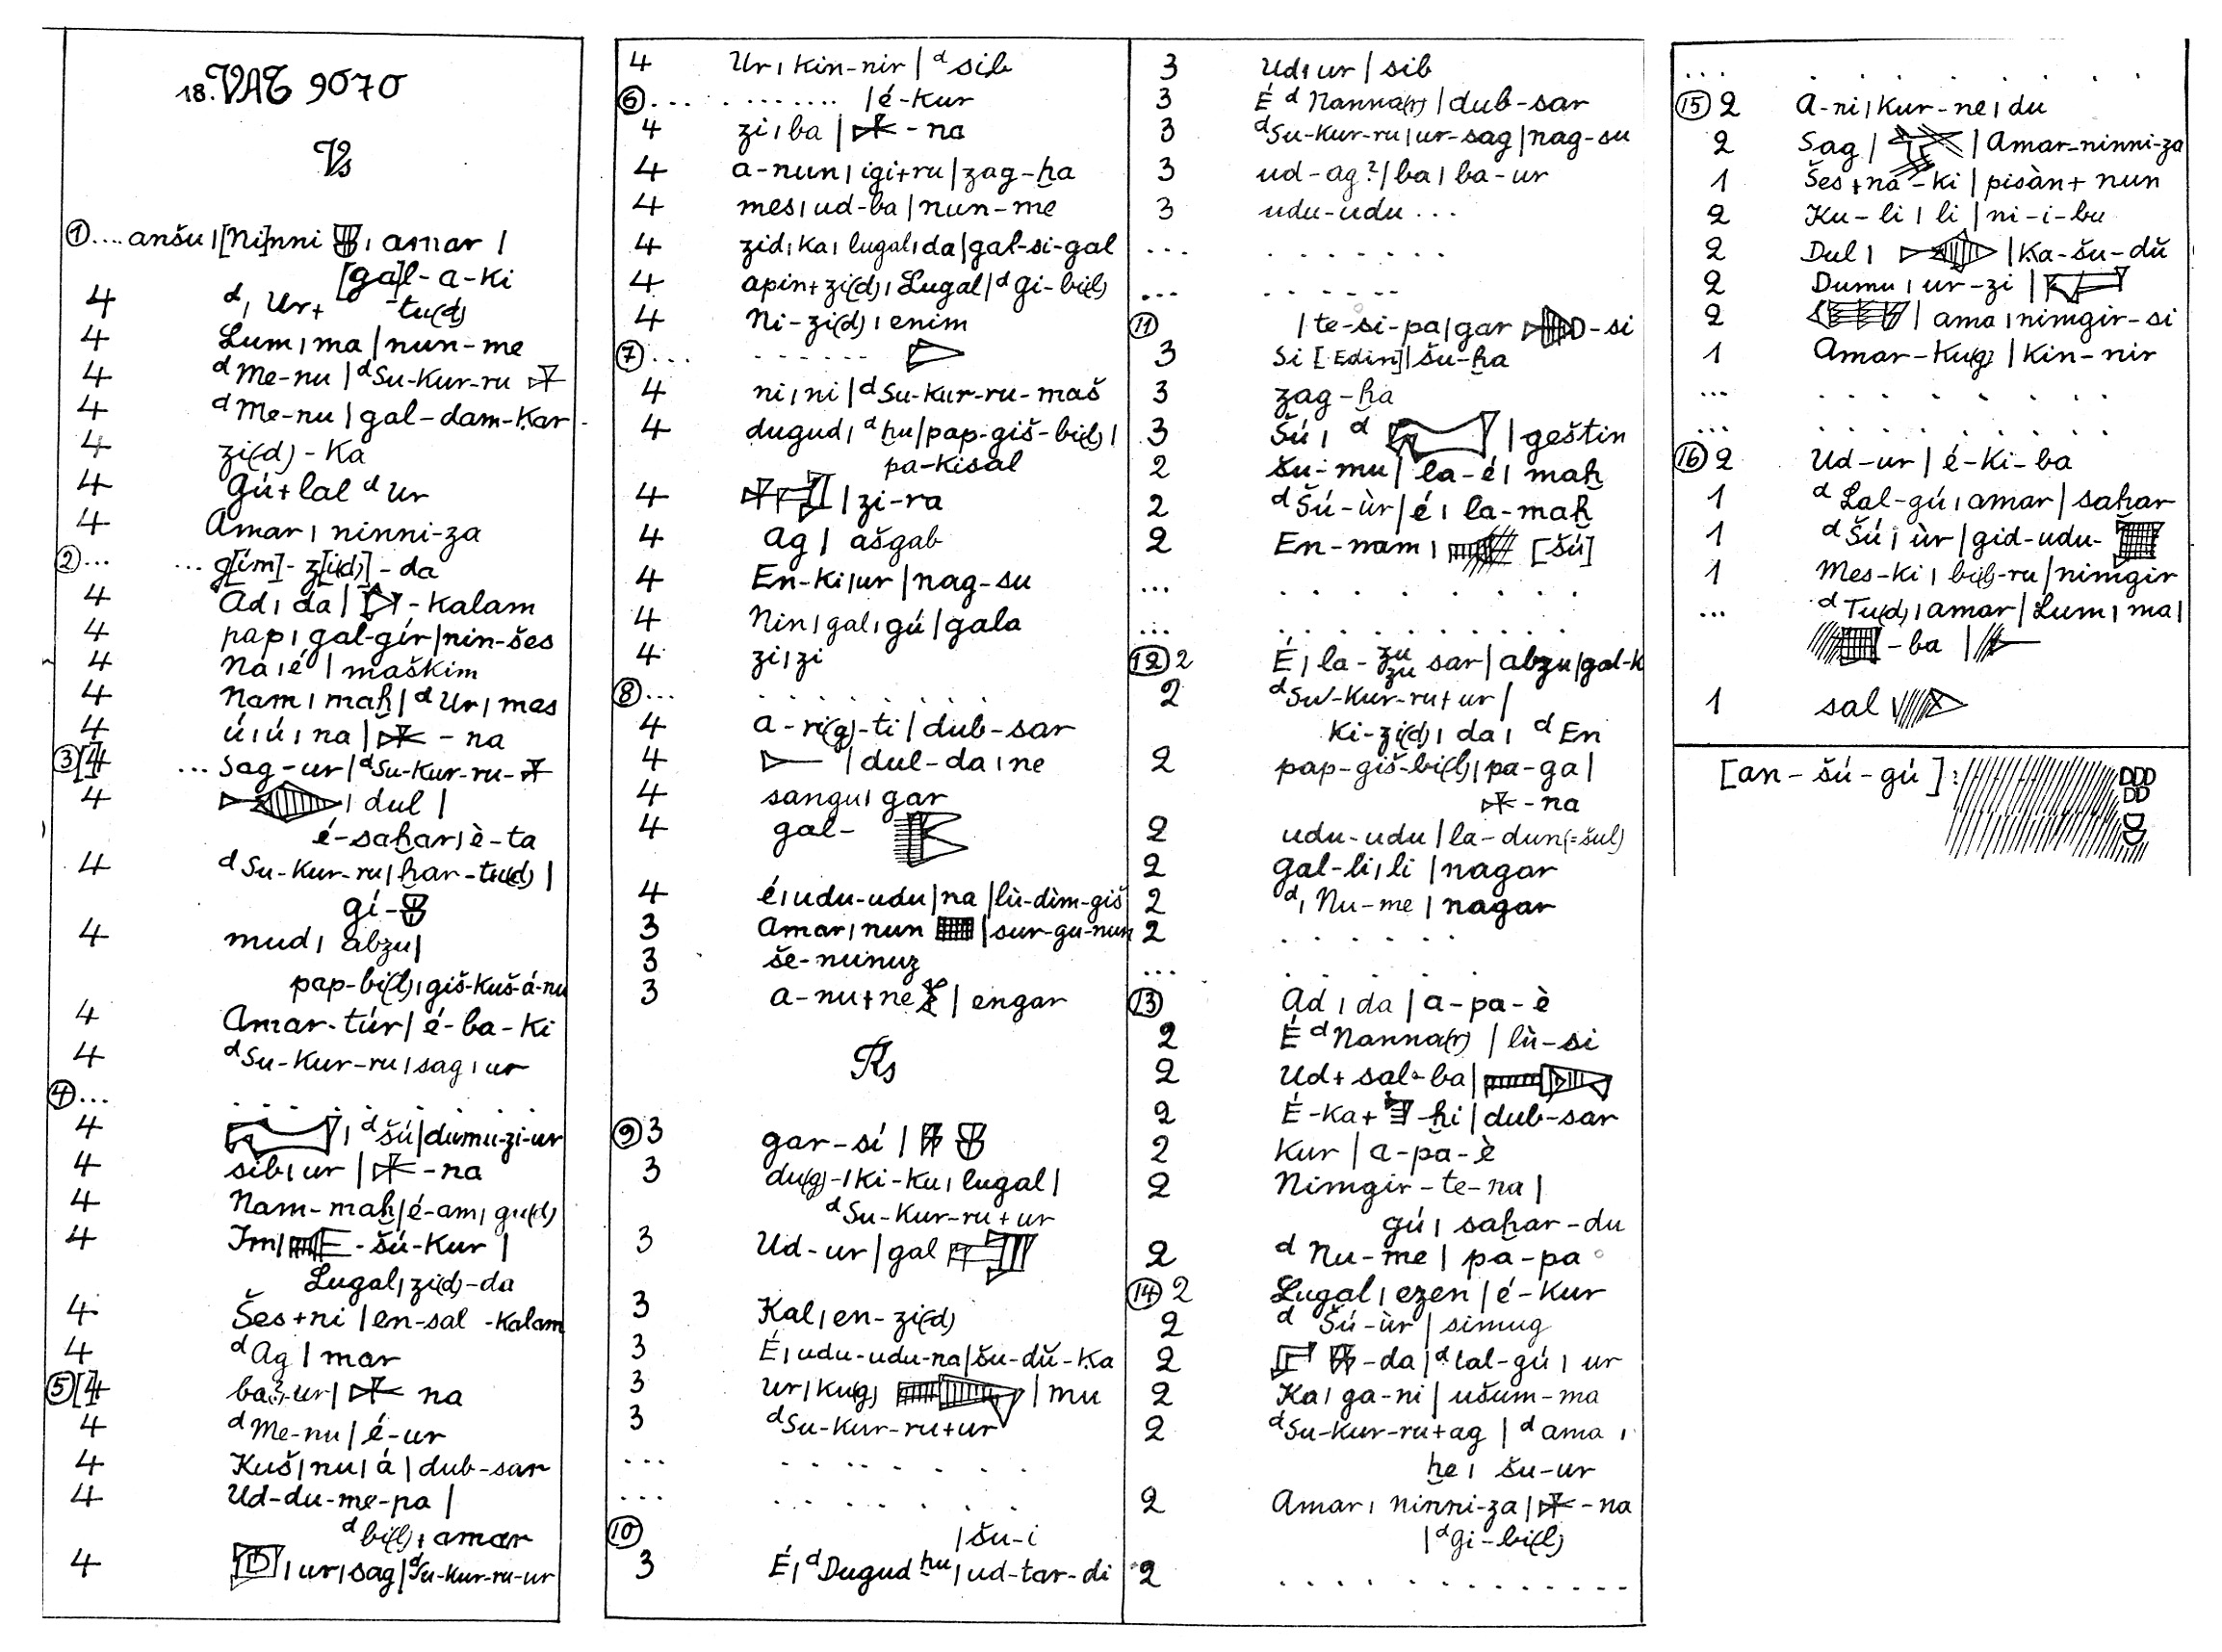 18. VAT 9070
Vs
① .... anšu | [Ni]nni | amar |
[ga]l-a-ki
4 d, Ur+ -tu(d)
4 Lum | ma | nun-me
4 ᵈMe-nu | ᵈSu-kur-ru
4 ᵈMe-nu | gal-dam-kar
4 zi(d)-ka
4 gú+lal ᵈUr
4 Amar | ninni-za
② ... ... g[ím]-z[i(d)]-da
4 Ad | da | -kalam
4 pap | gal-gír | nin-šes
4 Na | é | maškim
4 Nam | maḫ | ᵈUr | mes
4 ú | ú | na | -na
③ [4] ... Sag-ur | ᵈSu-kur-ru-
4 | dul |
é-saḫar | è-ta
4 ᵈSu-kur-ru | ḫar-tu(d) |
gí-
4 mud | abzu |
pap-bi(l) | giš-kuš-á-nu
4 Amar-túr | é-ba-ki
4 ᵈSu-kur-ru | sag | ur
④ ... . . . . . . .
4 | ᵈšú | dumu-zi-ur
4 sib | ur | -na
4 Nam-maḫ | é-am | gu(d)
4 Im | -šú-kur |
Lugal | zi(d)-da
4 Šes+ni | en-sal-kalam
4 ᵈAg | mar
⑤ [4] ba?-ur | na
4 ᵈMe-nu | é-ur
4 Kuš | nu | á | dub-sar
4 Ud-du-me-pa |
ᵈbi(l) + amar
4 | ur | sag | ᵈSu-kur-ru-ur
4 Ur | kin-nir | ᵈsib
⑥ ... ........ | é-kur
4 zi | ba | -na
4 a-nun | igi+ru | zag-ḫa
4 mes | ud-ba | nun-me
4 zid | ka | lugal | da | gal-si-gal
4 apin+zi(d) | Lugal | ᵈgi-bi(l)
4 Ni-zi(d) | enim
⑦ ... ......
4 ni | ni | ᵈSu-kur-ru-maš
4 dugud | ᵈḫu | pap-giš-bi(l) |
pa-kisal
4 | zi-ra
4 Ag | ašgab
4 En-ki | ur | nag-su
4 Nin | gal | gú | gala
4 zi | zi
⑧ ... . . . . . . .
4 a-ri(g)-ti | dub-sar
4 | dul-da | ne
4 sangu | gar
4 gal-
4 é | udu-udu | na | lù-dìm-giš
3 Amar | nun | sur-gu-nun
3 še-nunuz
3 a-nu+ne | engar
Rs
⑨ 3 gar-sí |
3 du(g)- | ki-ku | lugal |
ᵈSu-kur-ru+ur
3 Ud-ur | gal
3 Kal | en-zi(d)
3 É | udu-udu-na | šu-dŭ-ka
3 ur | ku(g) | mu
3 ᵈSu-kur-ru+ur
... . . . . . . .
... . . . . . . .
⑩ | šu-i
3 É | ᵈDugud ḫu | ud-tar-di
3 Ud | ur | sib
3 É ᵈNanna(r) | dub-sar
3 ᵈSu-kur-ru | ur-sag | nag-su
3 ud-ag? | ba | ba-ur
3 udu-udu ...
... . . . . . . .
... . . . . . .
⑪ | te-si-pa | gar -si
3 Si [Edin] | šu-ḫa
3 zag-ḫa
3 Šú | ᵈ | geštin
2 šu-mu | la-é | maḫ
2 ᵈŠú-ùr | é | la-maḫ
2 En-nam | [šú]
... . . . . . . . .
... . . . . . . . . .
⑫ 2 É | la-zu zu sar | abzu | gal-k
2 ᵈSu-kur-ru+ur |
ki-zi(d) | da | ᵈEn
2 pap-giš-bi(l) | pa-ga |
-na
2 udu-udu | la-dun(=šul)
2 gal-li | li | nagar
2 ᵈ, Nu-me | nagar
2 . . . . . .
... . . . . . .
⑬ Ad | da | a-pa-è
2 É ᵈNanna(r) | lù-si
2 Ud+sal-ba |
2 É-ka+ -ḫi | dub-sar
2 Kur | a-pa-è
2 Nimgir-te-na |
gú | saḫar-du
2 ᵈNu-me | pa-pa
⑭ 2 Lugal | ezen | é-kur
2 ᵈŠú-ùr | simug
2 -da | ᵈLal-gú | ur
2 Ka | ga-ni | ušum-ma
2 ᵈSu-kur-ru+ag | ᵈama |
ḫe | šu-ur
2 Amar | ninni-za | -na
| ᵈgi-bi(l)
2 . . . . . . . . . . .
... . . . . . . .
⑮ 2 A-ni | kur-ne | du
2 Sag | | Amar-ninni-za
1 Šes+na-ki | pisàn+nun
2 Ku-li | li | ni-i-bu
2 Dul | | Ka-šu-dŭ
2 Dumu | ur-zi |
2 | ama | nimgir-si
1 Amar-ku(g) | kin-nir
... . . . . . . . .
... . . . . . . . .
⑯ 2 Ud-ur | é-ki-ba
1 ᵈLal-gú | amar | saḫar
1 ᵈŠú | ùr | gid-udu-
1 Mes-ki | bi(l)-ru | nimgir
... ᵈTu(d) | amar | Lum | ma |
-ba |
1 sal
[an-šú-gú]: